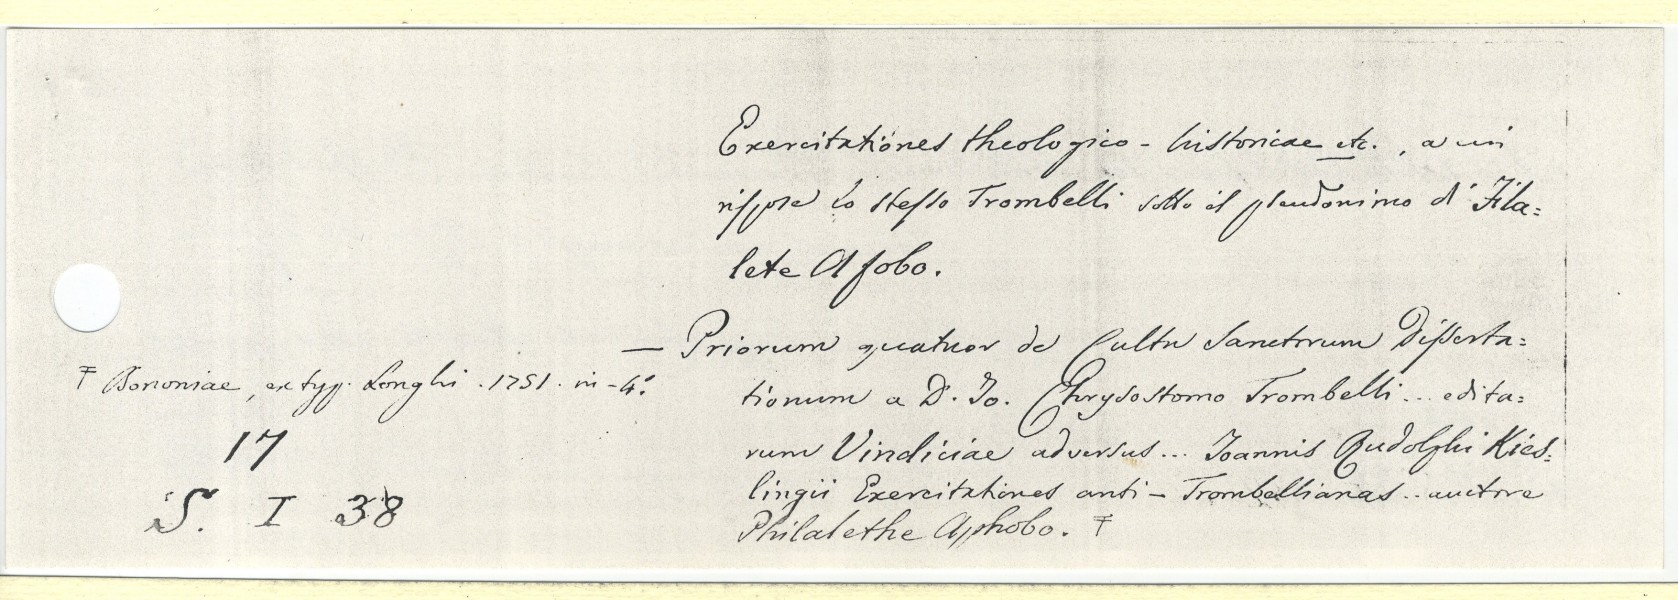 Exercitationes theologico-historicae etc., a cui
rispose lo stesso Trombelli sotto il pseudonimo di Fila=
lete Afobo.
— Priorum quatuor de Cultu Sanctorum Disserta=
tionum a D. Jo. Chrysostomo Trombelli... edita=
rum Vindiciae adversus... Joannis Rudolphi Kies=
lingii Exercitationes anti-Trombellianas.. auctore
Philalethe Aphobo. Ŧ
Ŧ Bononiae, ex typ. Longhi. 1751. in-4.°
17
S. I 38